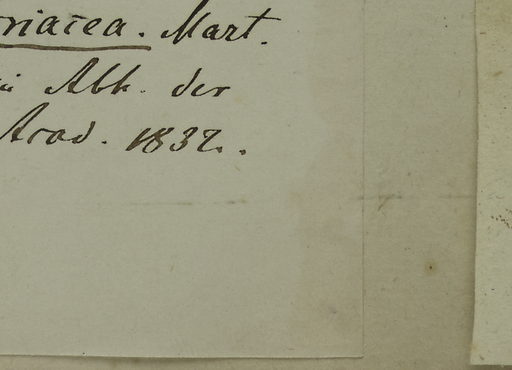 riacea. Mart.
Abh. der
Acad. 1832.